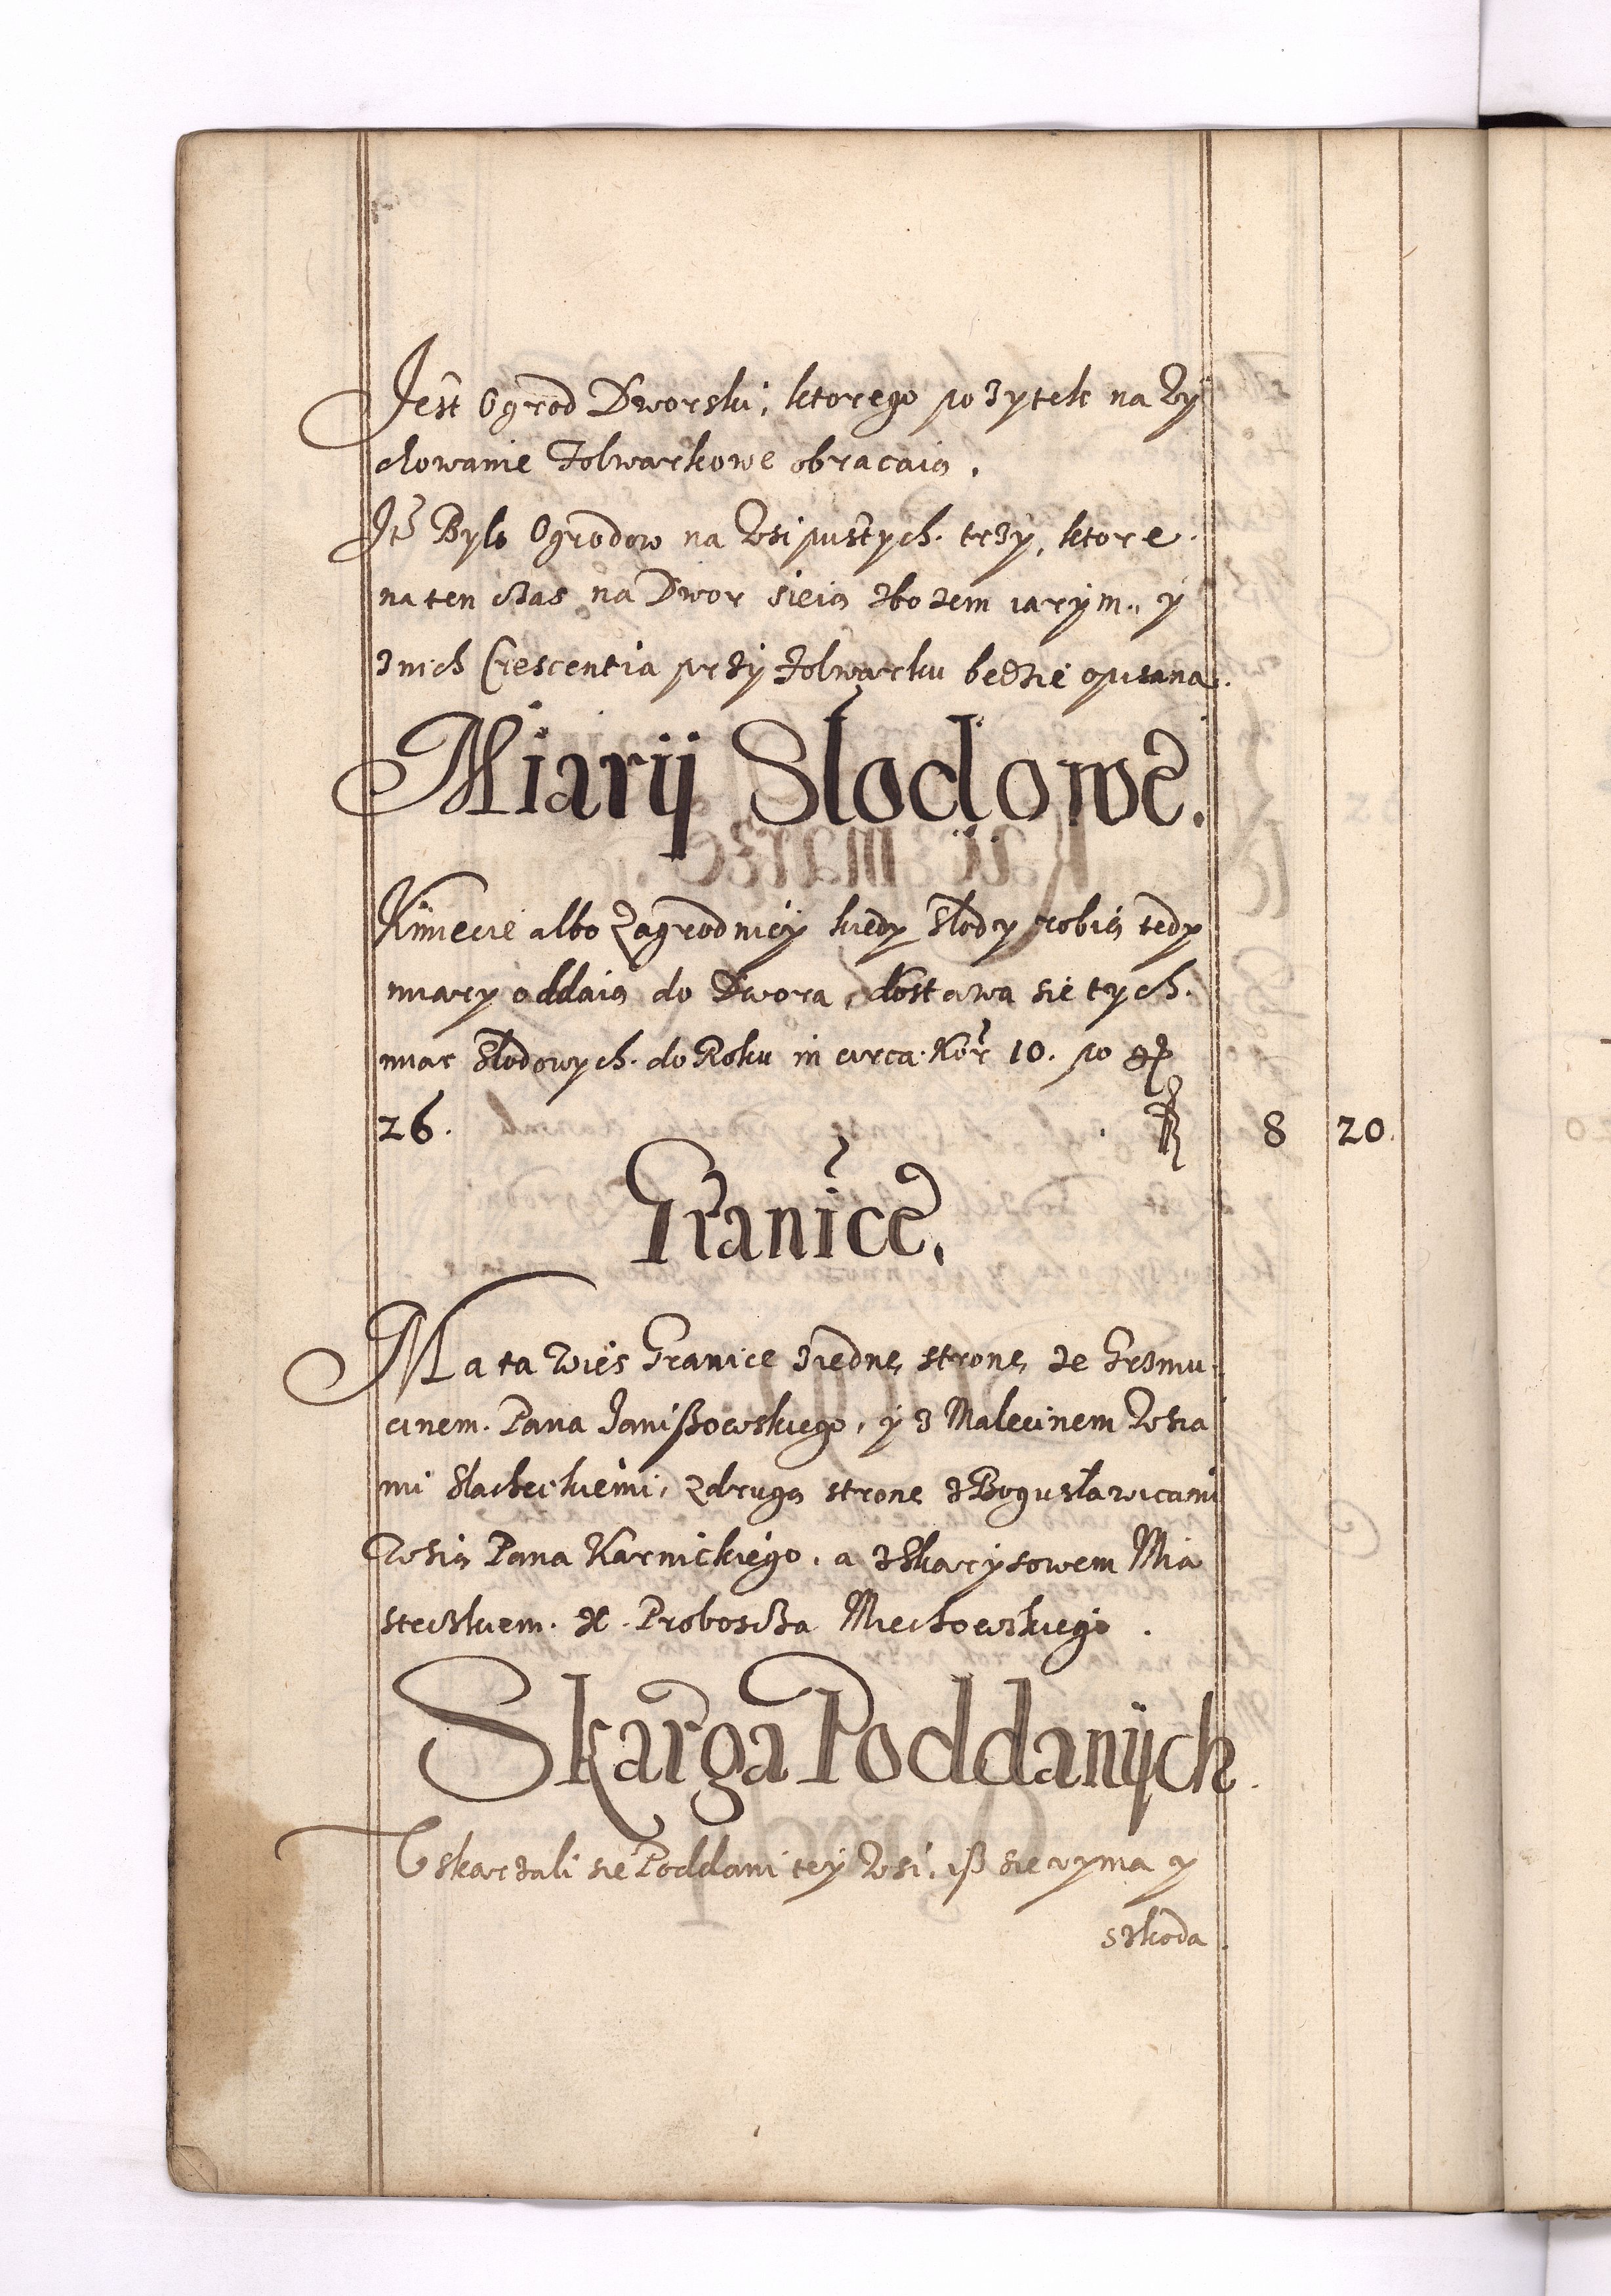 Jest Ogrod Dworski, ktorego pożytek na Wy
chowanie Folwarkowe obracaią.
Itē Bylo Ogrodow na Wsi pustych. trzy, ktore.
na ten czas na Dwor sieią zbożem iarym., y
z nich Crescentia przy Folwarku będzie opisana.
Miary Slodowe.
Kmiecie albo Zagrodnicy kiedy Słody robią tedy
miary oddaią do Dwora, dostawa się tych.
miar Słodowych. do Roku in circa. Kor. 10. po gr
26. 8 20.
Granice.
Ma ta Wies Granice z iednę stronę ze Grzmu
cinem. Pana Janißowskiego, y z Malecinem Wsia
mi Slacheckiemi, z drugą strone z Bogusławicami
Wsią Pana Karnickiego. a z Skarysowem Mia
steczkiem. X. Proboscza Miechowskiego.
Skarga Poddanych.
Uskarzali się Poddani tey Wsi, iß się uyma y
szkoda.